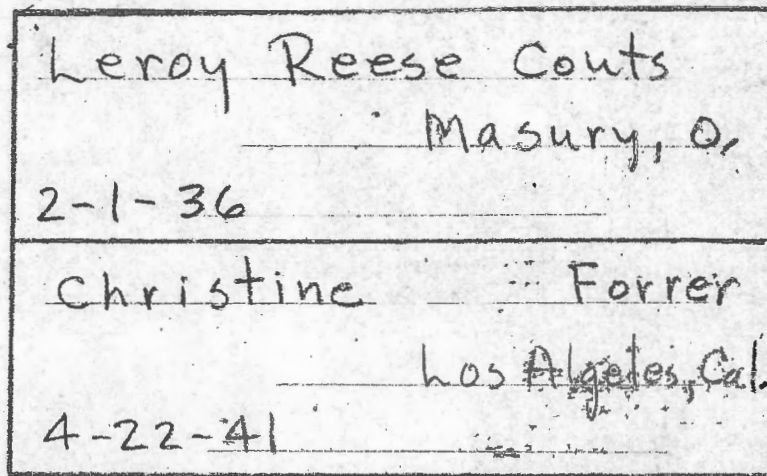 Leroy Reese Couts
Masury, O,
2-1-36
Christine Forrer
Los Algeles, Cal.
4-22-41